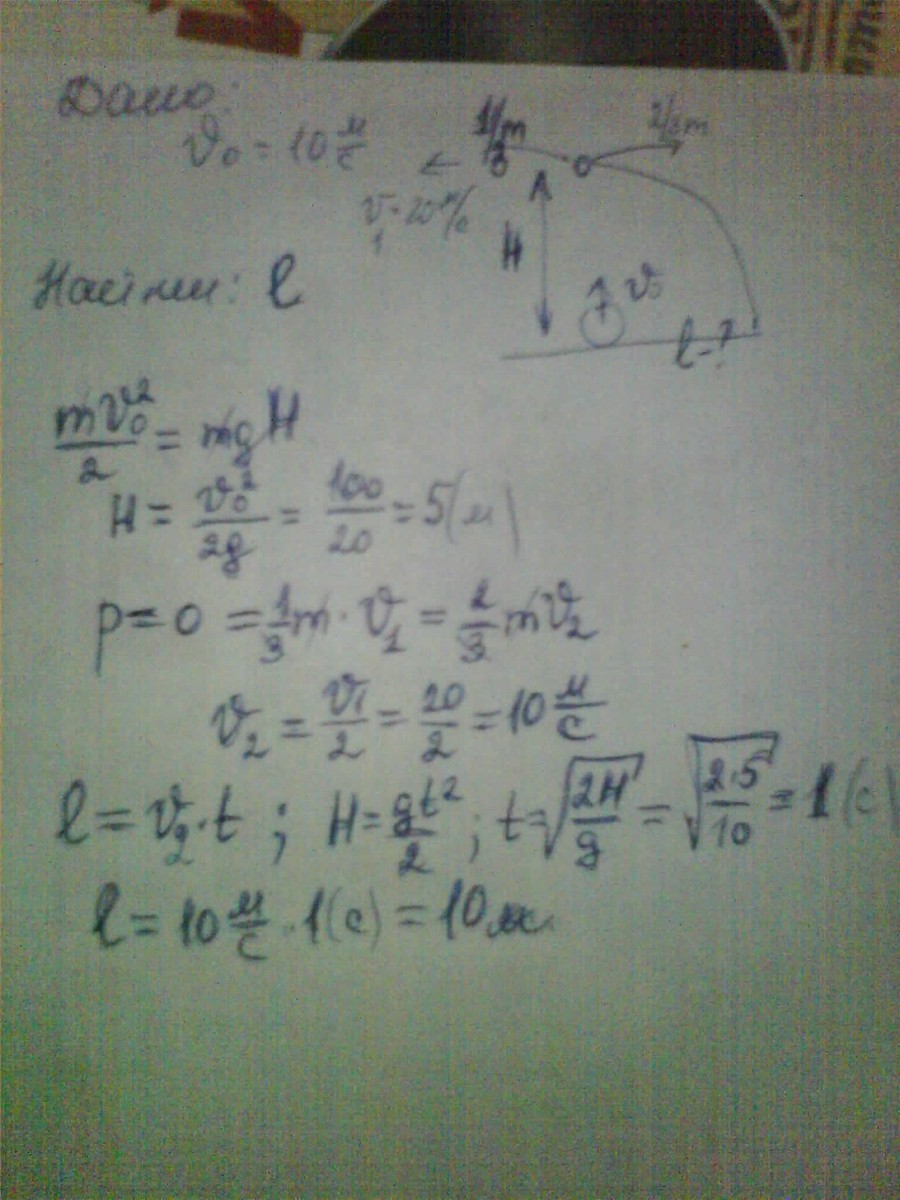 Дано:
v₀ = 10 м/с
1/3 m
2/3 m
v₁ = 20 м/с
H
v₀
l - ?
Найти: l
mv₀²/2 = mgH
H = v₀²/2g = 100/20 = 5 (м)
p = 0 = 1/3 m · v₁ = 2/3 mv₂
v₂ = v₁/2 = 20/2 = 10 м/с
l = v₂ · t ; H = gt²/2 ; t = √(2H/g) = √(2·5/10) = 1 (с)
l = 10 м/с · 1 (с) = 10 м.